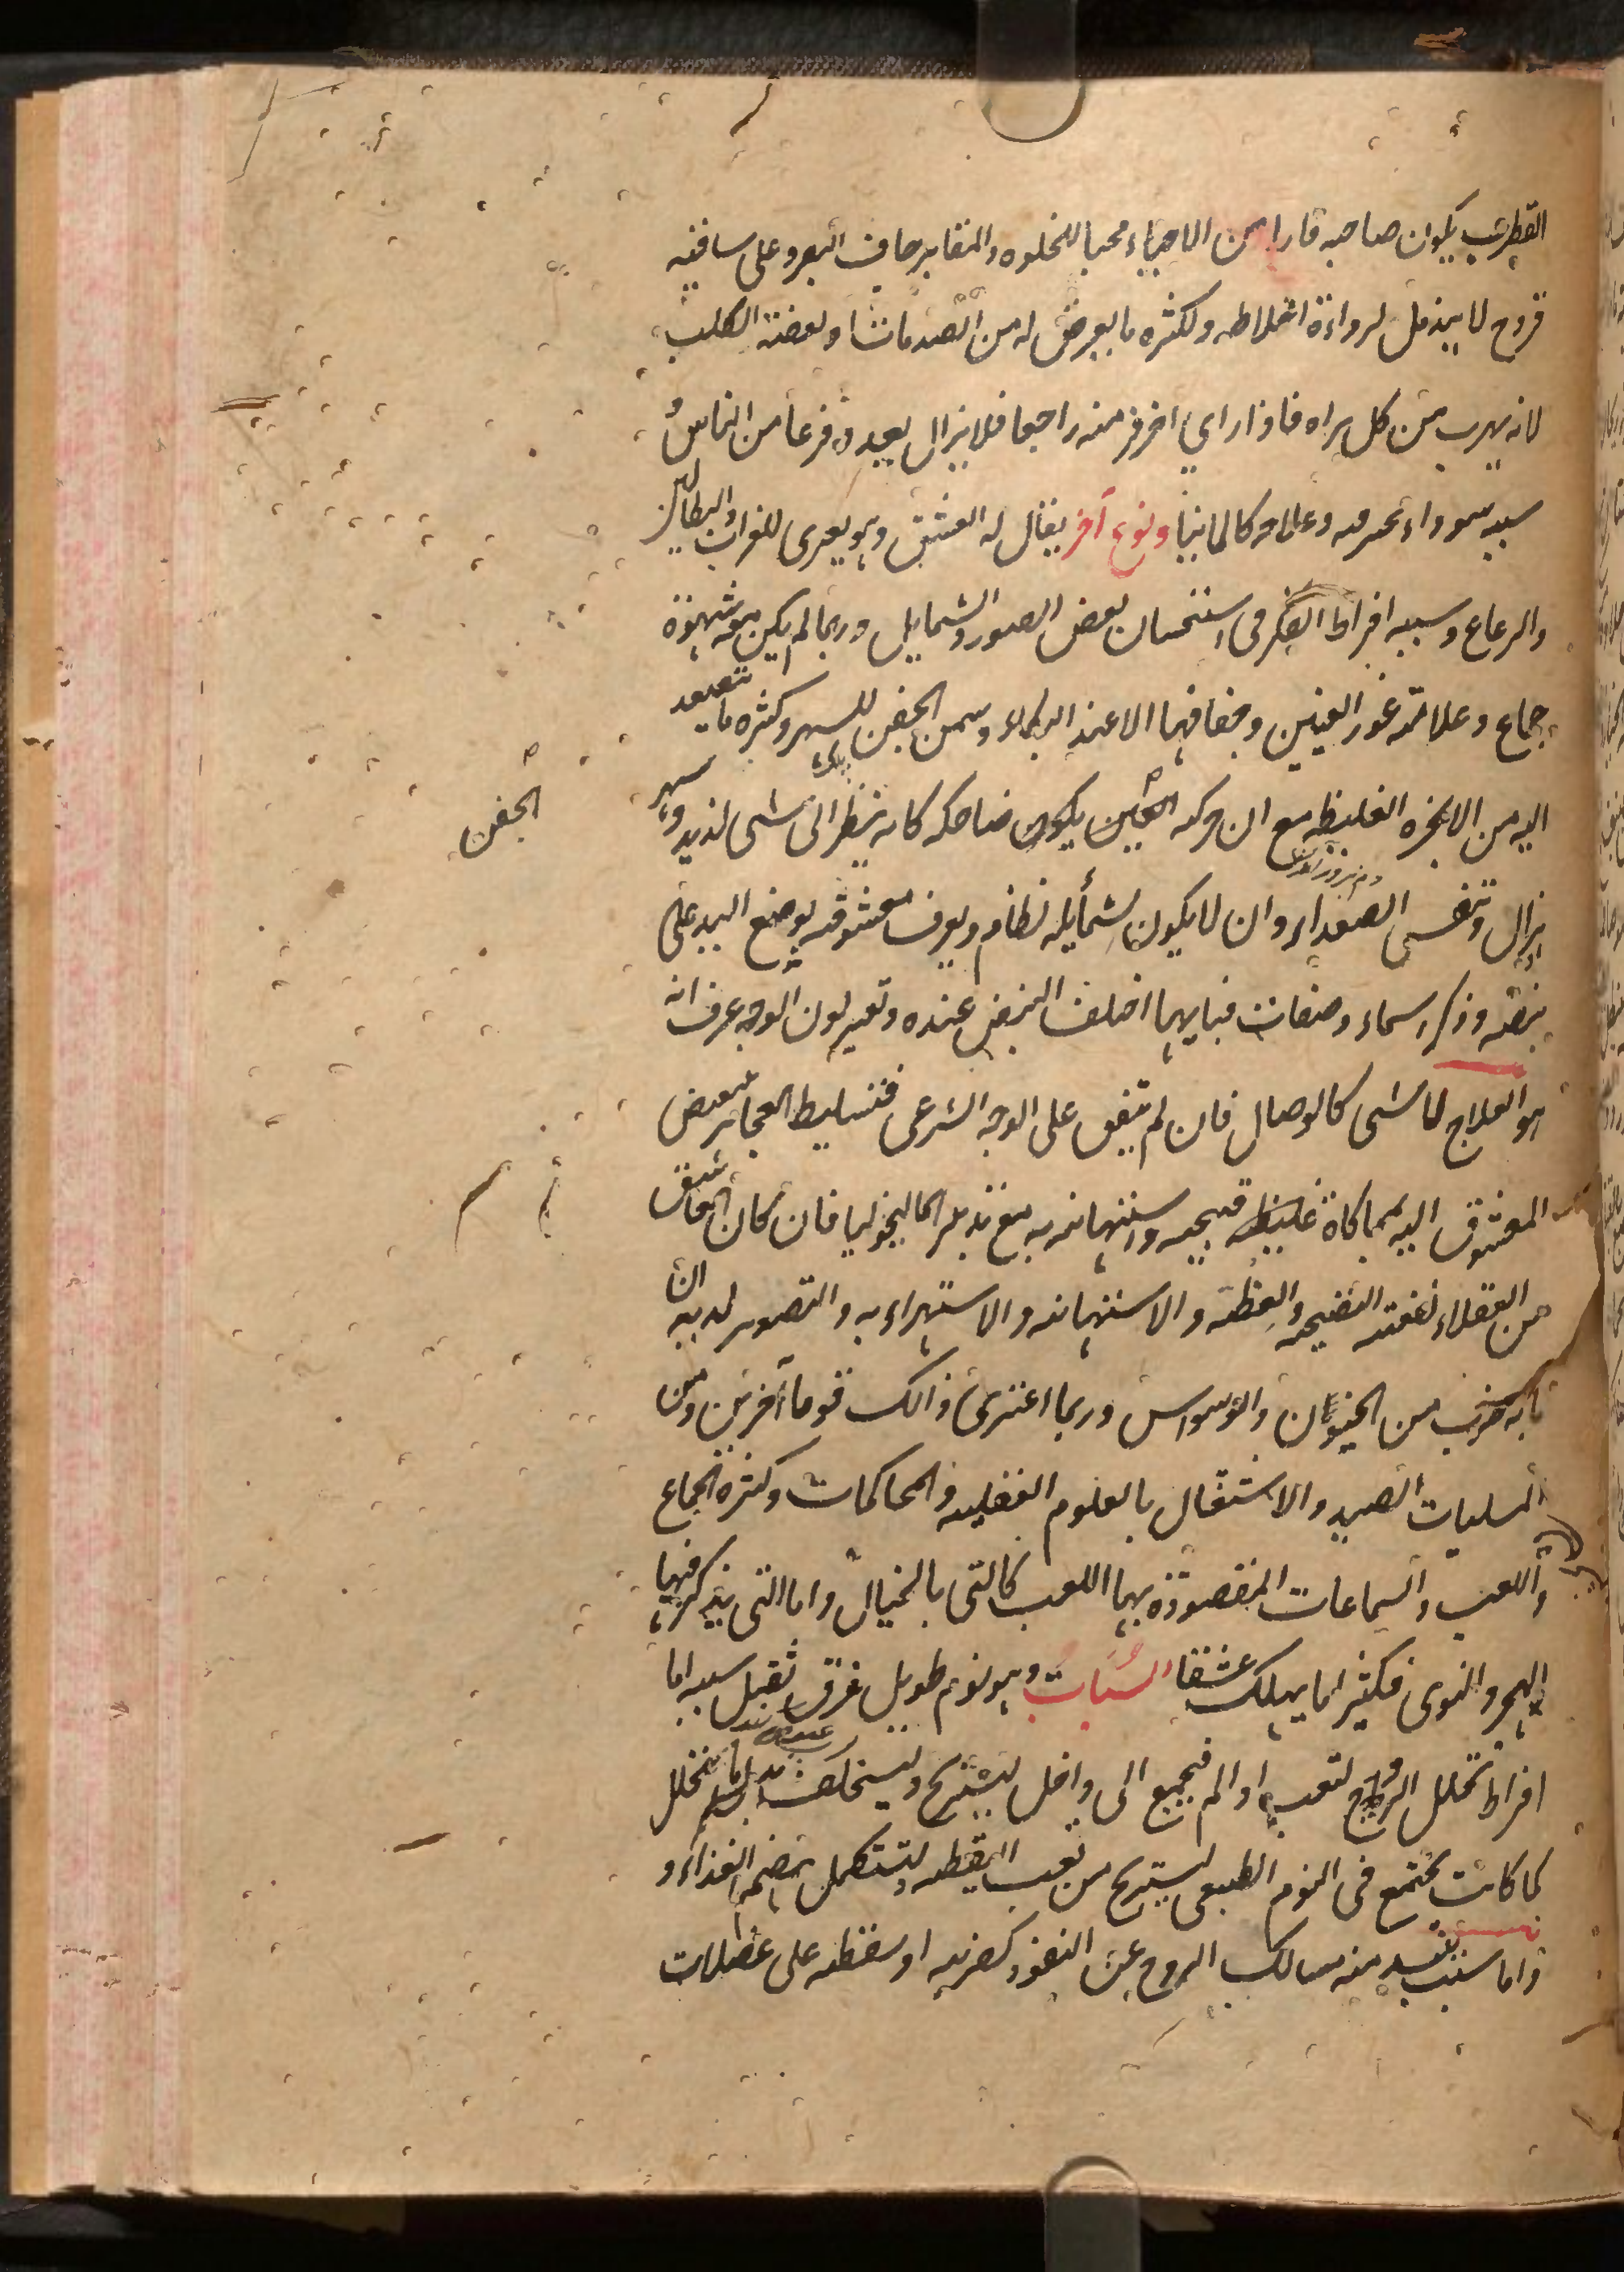 القطرب يكون صاحبه فارا من الاحياء محبا للخلوه والمقابر جاف البصر وعلى ساقيه
قروح لا يندمل لرداءة اخلاطه ولكثره ما يعرض له من الصدمات ولعضة الكلب
لانه يهرب من كل يراه فاذا راي اخر فر منه راجعا فلا يزال يعدو فزعا من الناس
سببه سوداء محترقه وعلاجه كالمانيا ونوع آخر يقال له العشق وهو يعترى للعزاب والبطالين
والرعاع وسببه افراط الفكر فى استحسان بعض الصور والشمايل وربما لم يكن معه شهوة
جماع وعلامته غور العينين وجفافهما الا عند البكاء وسمن الجفن للسهر وكثره ما يتصعد
اليه من الابخره الغليظه مع ان حركه الجفن يكون ضاحكه كانه ينظر الى شى لذيذ وسهر
الجفن
وهزال وتنفس الصعداء وان لا يكون لشمايله نظام ويعرف معشوقه بوضع اليد على
نبضه وذكر اسماء وصفات فبايهما اختلف النبض عنده وتغير لون الوجه عرف انه
هو العلاج لا شى كالوصال فان لم يتفق على الوجه الشرعى فتسليط العجايز لتبغيض
المعشوق اليه بمحاكاة غليظه قبيحه واستهانه به مع تدبير الماليخوليا فان كان العاشق
من العقلاء نفعته النصيحه والعظة والاستهانه والاستهزاء به والتصوير لديه ان
ما به ضرب من الجنون والوسواس وربما اغترى ذالك قوما آخرين ومن
المسليات الصيد والاشتغال بالعلوم العقليه والمحاكمات وكثره الجماع
واللعب والسماعات المقصوده بها اللعب كالتى بالخيال واما التى يذكر فيها
الهجر والنوى فكثيرا ما يهلك عشقا السُبَات وهو نوم طويل غرق ثقيل سببه اما
افراط تحلل الروح لتعب او الم فيجمع الى داخل ليستريح وليستخلف بدل ما يتحلل
كما كانت يجتمع فى النوم الطبيعى ليستريح من تعب اليقظه وليستكمل هضم الغذاء و
واما سبب يسد منه مسالك الروح عن النفوذ كضربه او سقطه على عضلات